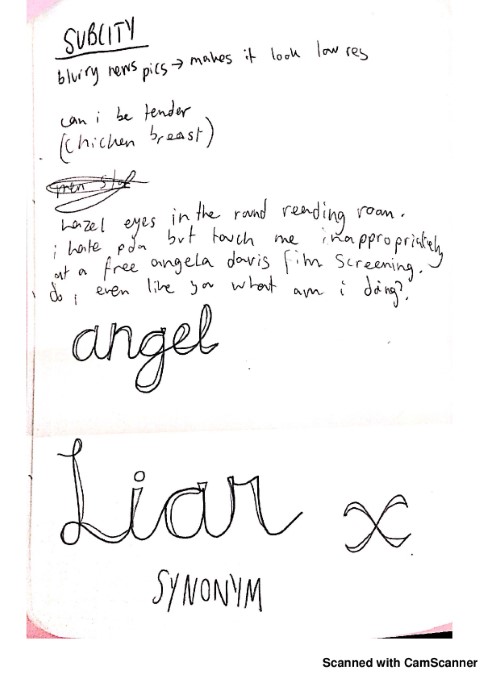 SUBLITY
blurry news pics → makes it look low res
can i be tender
(chicken breast)
hazel eyes in the round reading room.
i hate pda but touch me inappropriately
at a free angela davis film screening.
do i even like you what am i doing?
angel
Liar x
SYNONYM
Scanned with CamScanner